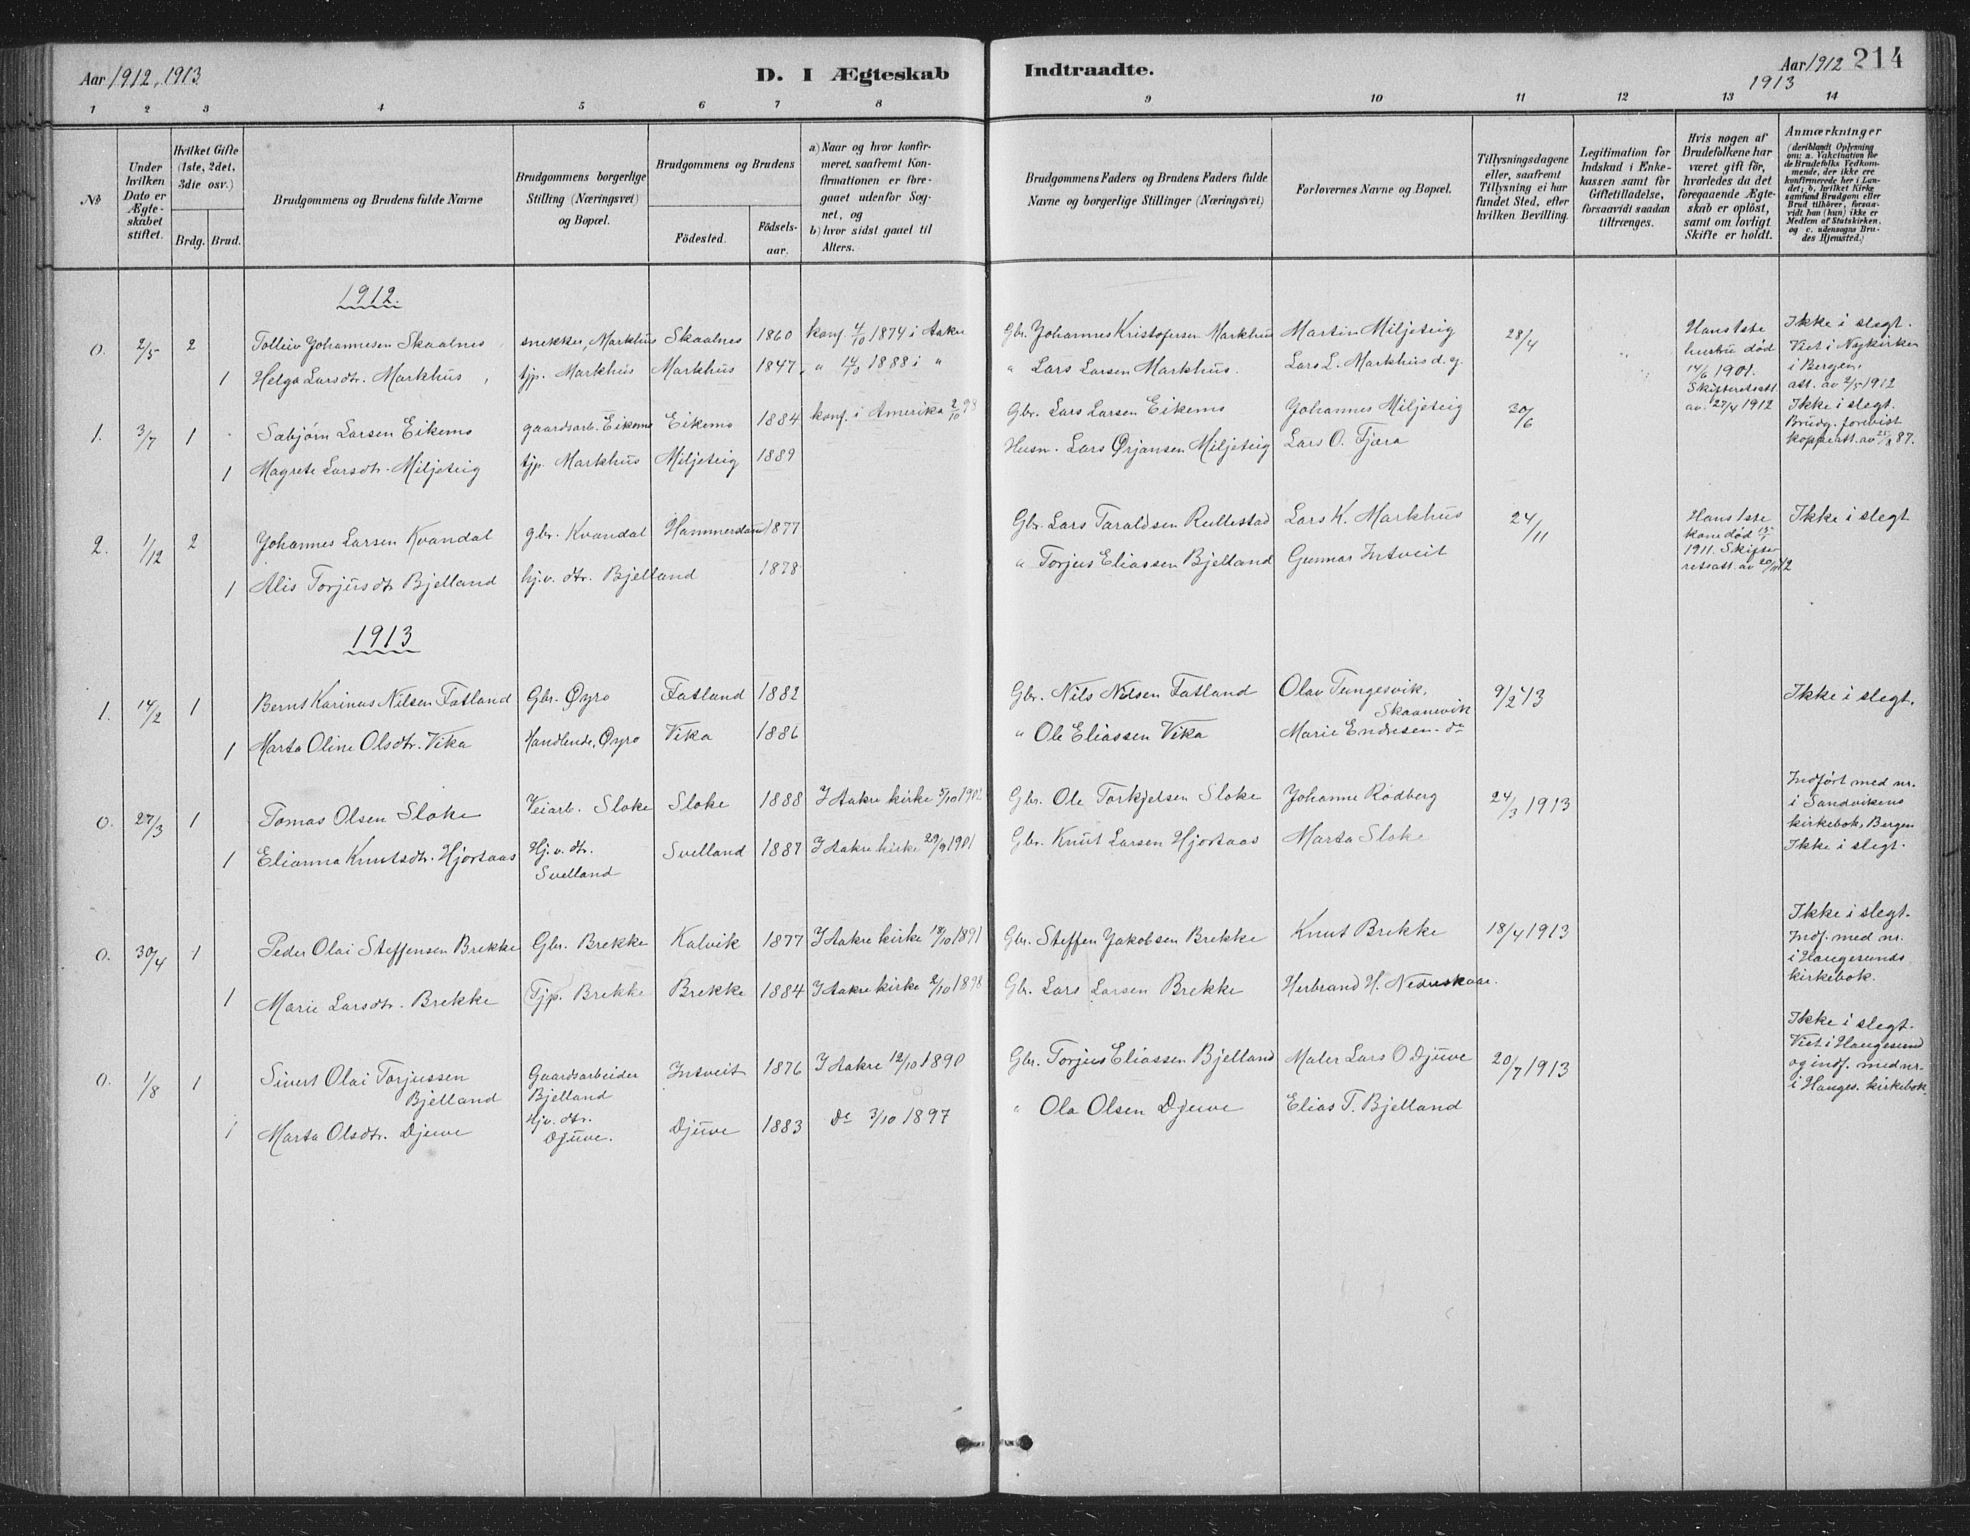 Aar 1912, 1913 D. I Ægteskab Indtraadte. Aar 1912 214
1913
1 2 3 4 5 6 7 8 9 10 11 12 13 14
№
Under hvilken Dato er Ægteskabet stiftet.
Hvilket Gifte (1ste, 2det, 3die osv.)
Brdg. Brud.
Brudgommens og Brudens fulde Navne
Brudgommens borgerlige Stilling (Næringsvei) og Bopæl.
Brudgommens og Brudens
Födested. Födselsaar.
a) Naar og hvor konfirmeret, saafremt Konfirmationen er foregaaet udenfor Sognet, og
b) hvor sidst gaaet til Alters.
Brudgommens Faders og Brudens Faders fulde Navne og borgerlige Stillinger (Næringsvei)
Forlovernes Navne og Bopæl.
Tillysningsdagene eller, saafremt Tillysning ei har fundet Sted, efter hvilken Bevilling.
Legitimation for Indskud i Enkekassen samt for Giftetilladelse, forsaavidt saadan tiltrænges.
Hvis nogen af Brudefolkene har været gift för, hvorledes da det foregaaende Ægteskab er oplöst, samt om lovligt Skifte er holdt.
Anmærkninger (deriblandt Oplysning om: a. Vakcination for de Brudefolks Vedkommende, der ikke ere konfirmerede her i Landet; b. hvilket Kirkesamfund Brudgom eller Brud tilhörer, forsaavidt han (hun) ikke er Medlem af Statskirken, og c. udensogns Brudes Hjemsted.)
1912.
0. 2/5 2 Tolleiv Johannesen Skaalnes snekker, Markhus Skaalnes 1860 konf. 4/10 1874 i Aakre Gbr. Johannes Kristofersen Markhus Martin Miljeteig 28/4 Hans 1ste hustru død 14/6 1901. Skifteretsatt. av 27/4 1912 Ikke i slegt. Viet i Nykirken i Bergen, att. av 2/5 1912
1 Helga Larsdtr. Markhus tjp. Markhus Markhus 1847 " " 1888 i " " Lars Larsen Markhus. Lars L. Markhus d. y.
1. 3/7 1 Sæbjørn Larsen Eikemo gaardsarb. Eikemo Eikemo 1884 konf. i Amerika 2/10 98 Gbr. Lars Larsen Eikemo Johannes Miljeteig 30/6 Ikke i slegt. Brudg. forevist koppeatt. av 87.
1 Magrete Larsdtr. Miljeteig tjp. Markhus Miljeteig 1889 Husm. Lars Ørjansen Miljeteig Lars O. Fjæra
2. 1/12 2 Johannes Larsen Kvandal gbr. Kvandal 1877 Gbr. Lars Taraldsen Rullestad Lars K. Markhus 24/11 Hans 1ste kone død 1911. Skifteretsatt. av Ikke i slegt
1 Alis Torjusdtr Bjelland hj.v. dtr. Bjelland 1878 " Torjus Eliassen Bjelland Gunnar Intveit
1913
1. 14/2 1 Bernt Karinus Nilsen Fatland Gbr. Øyro Fatland 1882 Gbr. Nils Nilsen Fatland Olav Tungesvik, Skaanevik 9/2 13 Ikke i slegt.
1 Marta Oline Olsdtr. Vika Handlende, Øyro Vika 1886 " Ole Eliassen Vika Marie Endresen - do
0. 27/3 1 Tomas Olsen Sloke Veiarb. Sloke Sloke 1888 I Aakre kirke 5/10 1902 Gbr. Ole Torkjelsen Sloke Johanne Rødberg 24/3 1913 Indført med nr. i Sandvikens kirkebok, Bergen Ikke i slegt.
1 Elianna Knutsdtr. Hjortaas Hj.v. dtr. Svelland Svelland 1887 I Aakre kirke 29/9 1901 Gbr. Knut Larsen Hjortaas Marta Sloke
0. 30/4 1 Peder Olai Steffensen Brekke Gbr. Brekke Kalvik 1877 I Aakre kirke 18/10 1891 Gbr. Steffen Jakobsen Brekke Knut Brekke 18/4 1913 Ikke i slegt. Indf. med nr. i Haugesunds kirkebok.
1 Marie Larsdtr. Brekke Tjp. Brekke Brekke 1884 I Aakre kirke 2/10 1898 Gbr. Lars Larsen Brekke Herbrand H. Nedreskaar.
0. 1/8 1 Sivert Olai Torjussen Bjelland Gaardsarbeider Bjelland Intveit 1876 I Aakre 12/10 1890 Gbr. Torjus Eliassen Bjelland Maler Lars O Djuve 20/7 1913 Ikke i slegt. Viet i Haugesund og indf. med nr. i Hauges. kirkebok.
1 Marta Olsdtr. Djuve Hjv. dtr. Djuve. Djuve 1883 Do 3/10 1897 " Ola Olsen Djuve Elias T. Bjelland